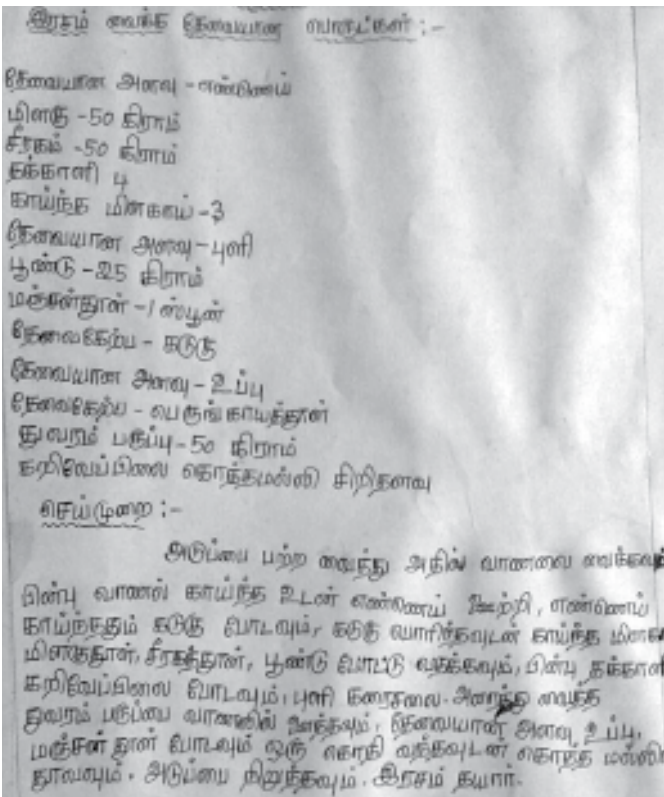 இரசம் வைக்க தேவையான பொருட்கள் :-
தேவையான அளவு - எண்ணெய்
மிளகு - 50 கிராம்
சீரகம் - 50 கிராம்
தக்காளி 4
காய்ந்த மிளகாய் - 3
தேவையான அளவு - புளி
பூண்டு - 25 கிராம்
மஞ்சள்தூள் - 1 ஸ்பூன்
தேவைகேற்ப - கடுகு
தேவையான அளவு - உப்பு
தேவைகேற்ப - பெருங்காயத்தூள்
துவரம் பருப்பு - 50 கிராம்
கறிவேப்பிலை கொத்தமல்லி சிறிதளவு
செய்முறை :-
அடுப்பை பற்ற வைத்து அதில் வாணலை வைக்கவும்
பின்பு வாணல் காய்ந்த உடன் எண்ணெய் ஊற்றி, எண்ணெய்
காய்ந்ததும் கடுகு போடவும், கடுகு காய்ந்த
மிளகுதூள், சீரகத்தூள், பூண்டு போட்டு வதக்கவும், பின்பு
கறிவேப்பிலை போடவும், புளி கரைசலை. வைத்த
துவரம் பருப்பை வாணலில் ஊத்தவும், தேவையான அளவு உப்பு,
மஞ்சள் தூள் போடவும் ஒரு கொதி வந்தவுடன் கொத்த
தூவவும். அடுப்பை நிறுத்தவும். இரசம் தயார்.